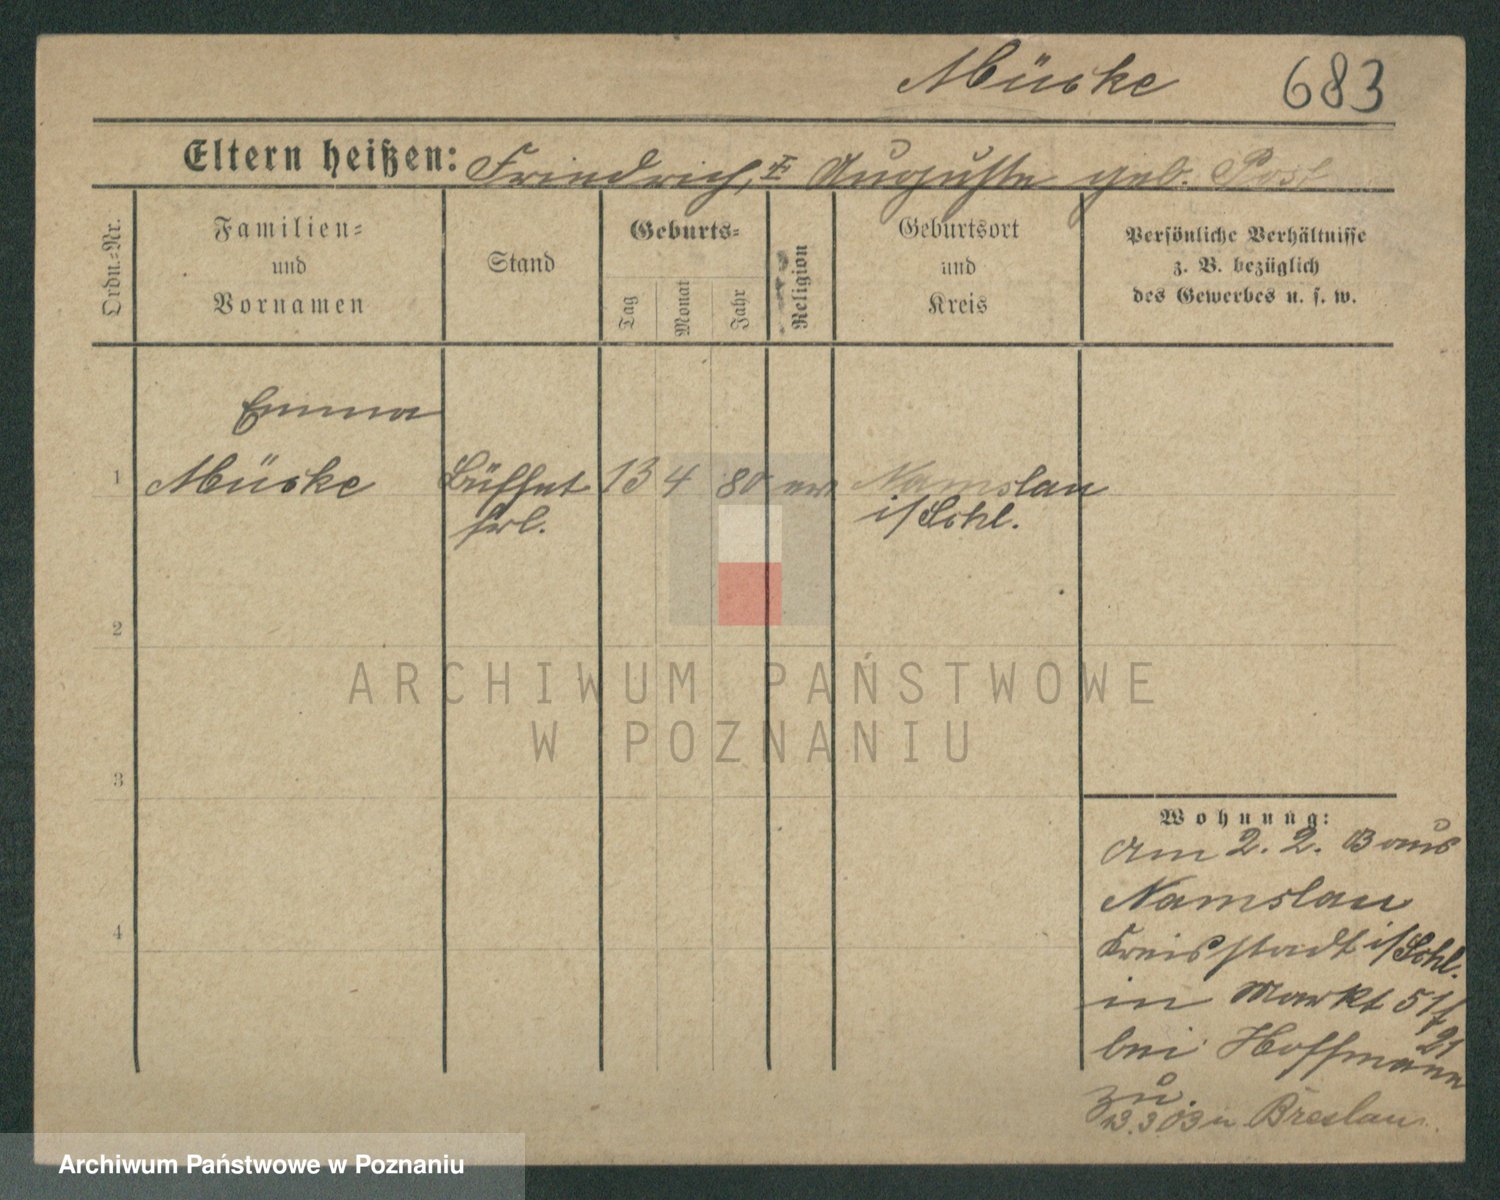 Müske 683
Eltern heißen: Friedrich, Auguste geb. Post
Ordn.-Nr.
Familien-
und
Vornamen
Stand
Geburts-
Tag
Monat
Jahr
Religion
Geburtsort
und
Kreis
Persönliche Verhältnisse
z. B. bezüglich
des Gewerbes u. s. w.
Emma
1 Müske Büffet 13 4 80 ev Namslau
frl. i/Schl.
2
3
4
ARCHIWUM PAŃSTWOWE
W POZNANIU
Wohnung:
Am 2. 2. 03 aus
Namslau
Kreisstadt i/Schl.
in Markt 51/
21
bei Hoffmann
zu.
13.3 03 n Breslau
Archiwum Państwowe w Poznaniu